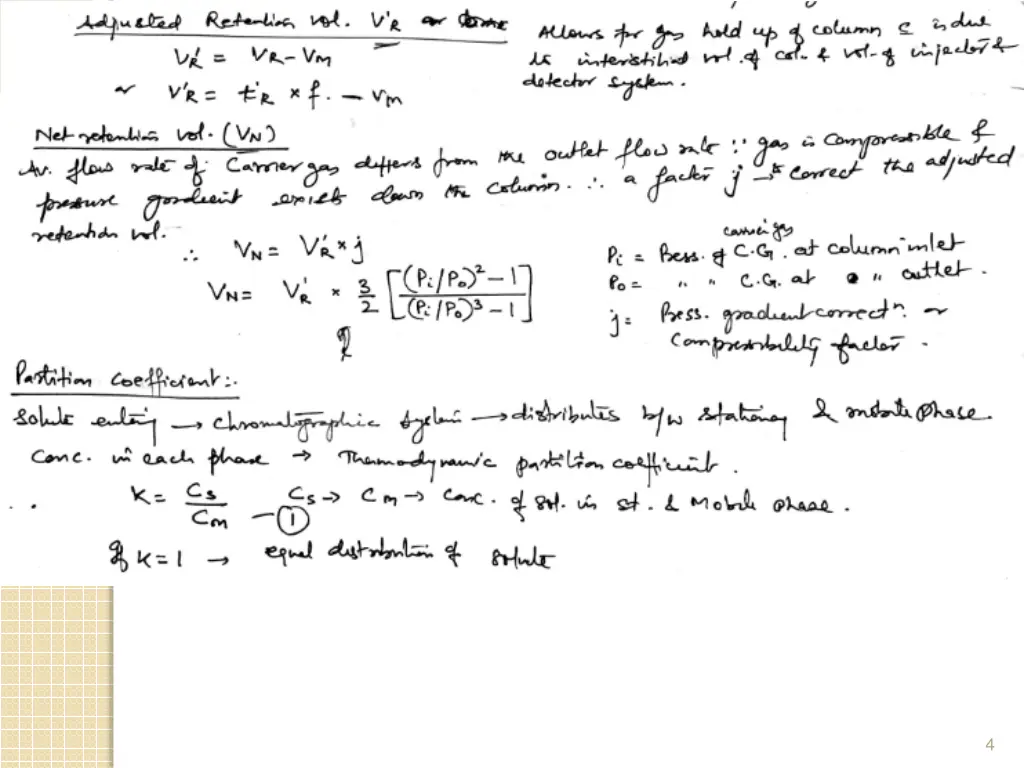 Adjusted Retention vol. V'R or time
Allows for gas hold up of column c is due
to interstitial vol. of col. & vol. of injector &
detector system.
V'R = VR - VM
or V'R = t'R × f. - Vm
Net retention vol. (VN)
Av. flow rate of Carrier gas differs from the outlet flow rate ∵ gas is compressible &
pressure gradient exists down the column. ∴ a factor j → to correct the adjusted
retention vol.
∴ VN = V'R × j
VN = V'R × 3/2 [(Pi/Po)² - 1 / (Pi/Po)³ - 1]
carrier gas
Pi = Press. of C.G. at column inlet
Po = " " C.G. at " outlet.
j = Press. gradient correctn. or
Compressibility factor.
Partition Coefficient:.
Solute entering → chromatographic system → distributes b/w stationary & mobile phase.
Conc. in each phase → Thermodynamic partition coefficient.
K = Cs/Cm — ① Cs → Cm → Conc. of sol. in st. & Mobile phase.
If K = 1 → equal distribution of solute
4